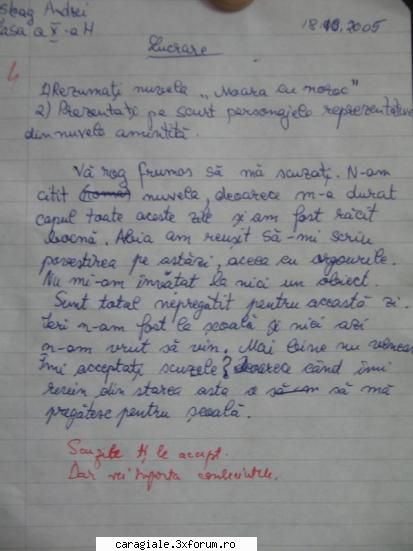 Andrei
a X-a H
18.10.2005
Lucrare
4
1) Rezumați nuvela „Moara cu noroc"
2) Prezentați pe scurt personajele reprezentative
din nuvela amintită.
Vă rog frumos să mă scuzați. N-am
citit (roman) nuvela, deoarece m-a durat
capul toate aceste zile și am fost răcit
bocnă. Abia am reușit să-mi scriu
povestirea pe astăzi, aceea cu argourile.
Nu mi-am învățat la nici un obiect.
Sunt total nepregătit pentru această zi.
Ieri n-am fost la școală și nici azi
n-am vrut să vin. Mai bine nu veneam
Îmi acceptați scuzele? deoarece când îmi
revin din starea asta o să să mă
pregătesc pentru școală.
Scuzele ți le accept.
Dar vei suporta consecințele.
caragiale.3xforum.ro